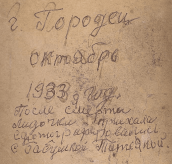 г. Городец
октябрь
1933 г. году.
После смерти
Лидочки приехали
сфотографировались
с бабушкой Татьяной.